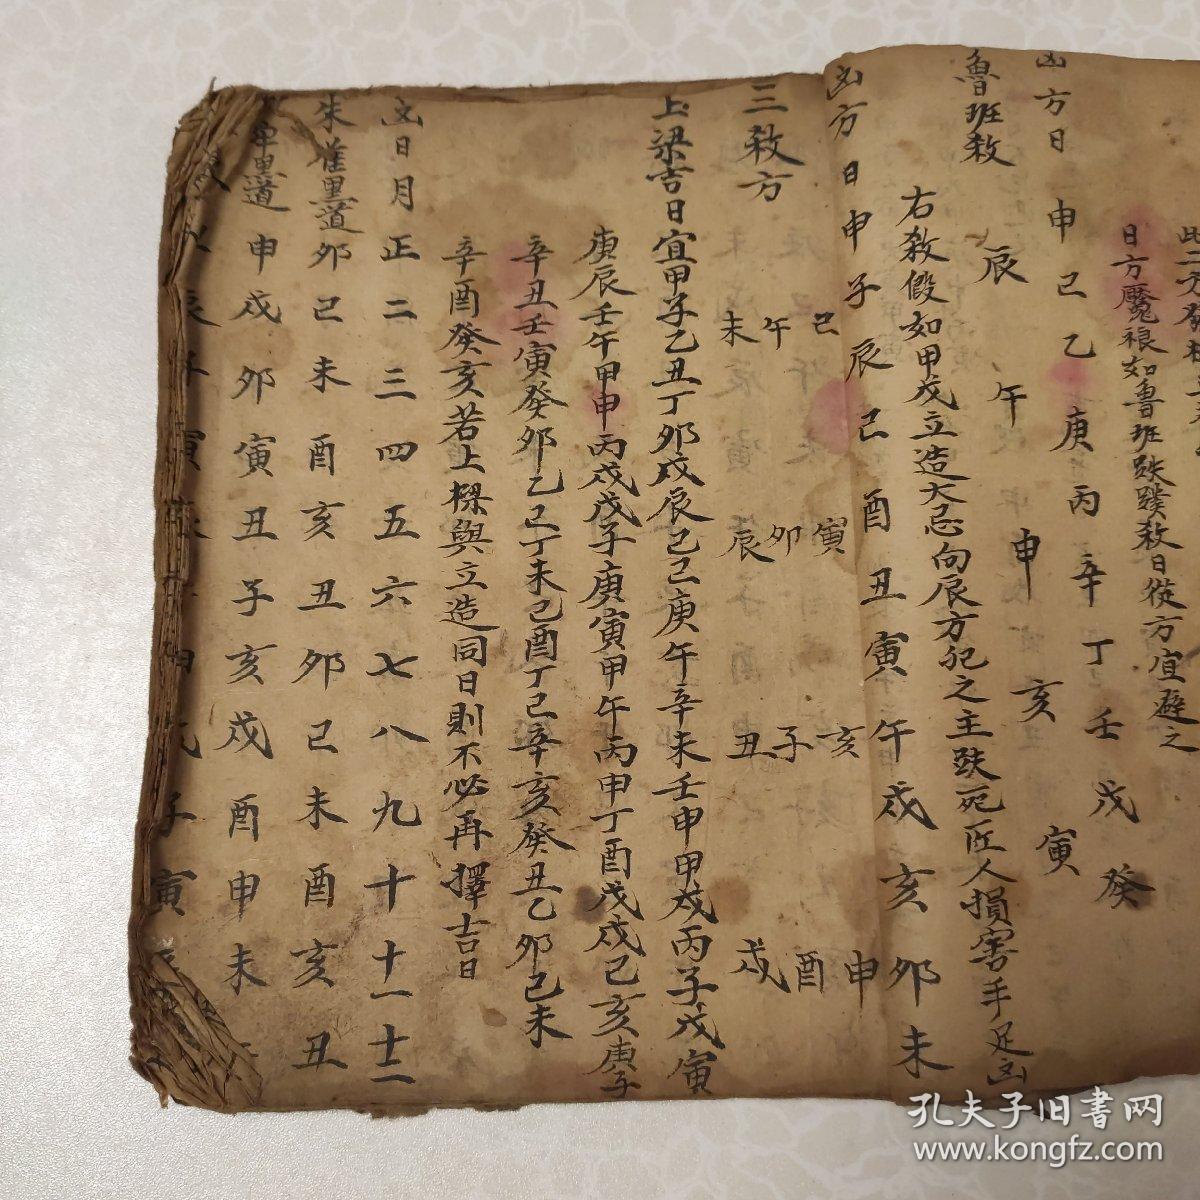 此二
日方魘禳如魯班跌蹼殺日從方宜避之
凶方日申己乙庚丙辛丁壬戊癸
魯班殺 辰午申亥寅
右殺假如甲戌立造大忌向辰方犯之主跌死匠人損害手足凶
凶方日申子辰己酉丑寅午戌亥卯未
三殺方
巳 寅 亥 申
午 卯 子 酉
未 辰 丑 戌
上梁吉日宜甲子乙丑丁卯戊辰己巳庚午辛未壬申甲戌丙子戊寅
庚辰壬午甲申丙戌戊子庚寅甲午丙申丁酉戊戌己亥庚子
辛丑壬寅癸卯乙巳丁未己酉丁巳辛亥癸丑乙卯己未
辛酉癸亥若上樑與立造同日則不必再擇吉日
凶日月正二三四五六七八九十十一十二
朱雀黑道卯巳未酉亥丑卯巳未酉亥丑
黑道申戌卯寅丑子亥戌酉申未
辰 寅 申 子寅
孔夫子旧书网
www.kongfz.com